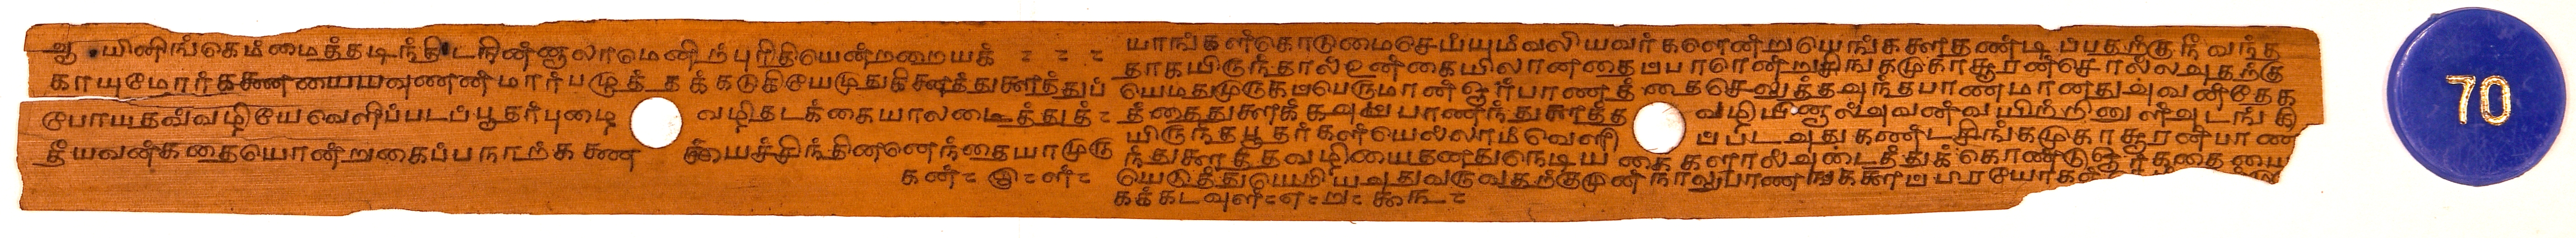 யினிங்கெம்மைத்தடிந்திடநின்னாலாமெனிற்புரிதியென்றறையக்
காயுமோர்கணையயவுணன்மார்பழுத்தக்கடுகியேமுதுகினூத்துளைத்துப்
போயதவ்வழியேவெளிப்படப்பூதர்புழை வழிதடக்கையாலடைத்துத்
தீயவன்கதையொன்றுகைப்பநாற்கணை யைச்சிந்தினனெந்தையாமுரு
கன்
யாங்கள்கொடுமைசெய்யும்வலியவர்களென்றுயெங்களைதண்டிப்பதற்குநீவந்த
தாகயிருந்தால்உன்கையிலானதைப்பாரென்றுசிங்கமுகாசூரன்சொல்லஅதற்கு
யெமதுமுருகப்பெருமான்ஓர்பாணத்தைசெலுத்தஅந்தபாணமானதுஅவன்தேக
த்தைதுளைக்கஅப்பாணந்துளைத்த வழியினால்அவன்வயிற்றினுள்அடங்கி
யிருந்தபூதர்களியெல்லாம்வெளிப் ப்படஅதுகண்டசிங்கமுகாசூரன்பாண
ந்துளைத்தவழியைதனதுநெடிய கைகளால்அடைத்துக்கொண்டுஓர்கதையை
யெடுத்துயெறியஅதுவருவதற்குமுன்நாலுபாண
கக்கடவுள்
70